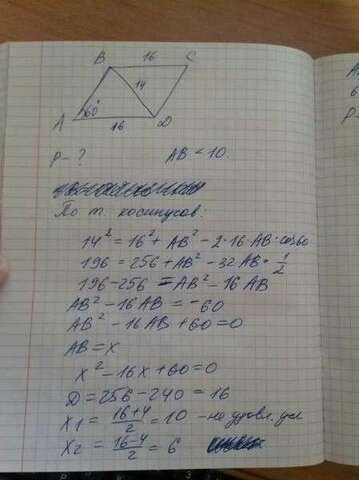 B 16 C
14
A 60° 16 D
P - ? AB < 10.
По т. косинусов:
14² = 16² + AB² - 2·16 AB·cos60
196 = 256 + AB² - 32AB · 1/2
196 - 256 = AB² - 16 AB
AB² - 16AB = -60
AB² - 16AB + 60 = 0
AB = x
x² - 16x + 60 = 0
D = 256 - 240 = 16
x1 = (16+4)/2 = 10 - не удовл. усл
x2 = (16-4)/2 = 6